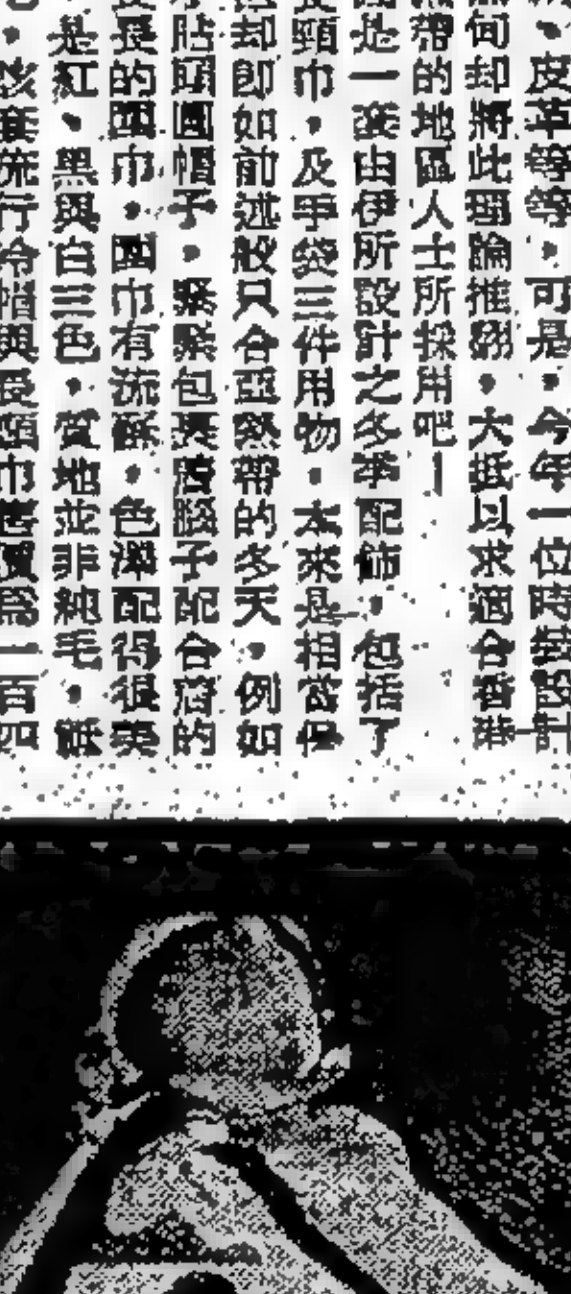 、皮革等等。可是,今年一位時裝設計
甸却將此理論推翻,大抵以求適合香港
帶的地區人士所採用吧!
是一套由伊所設計之冬季配飾,包括了
長頸巾,及手袋三件用物。本來是相當
却即如前述般只合亞熱帶的冬天。例如
貼頭圓帽子,緊緊包裹腦子配合着的
長的圍巾,圍巾有流蘇,色澤配得很美
是紅、黑與白三色,質地並非純毛,
流行冷帽與長頸巾售價爲一百四